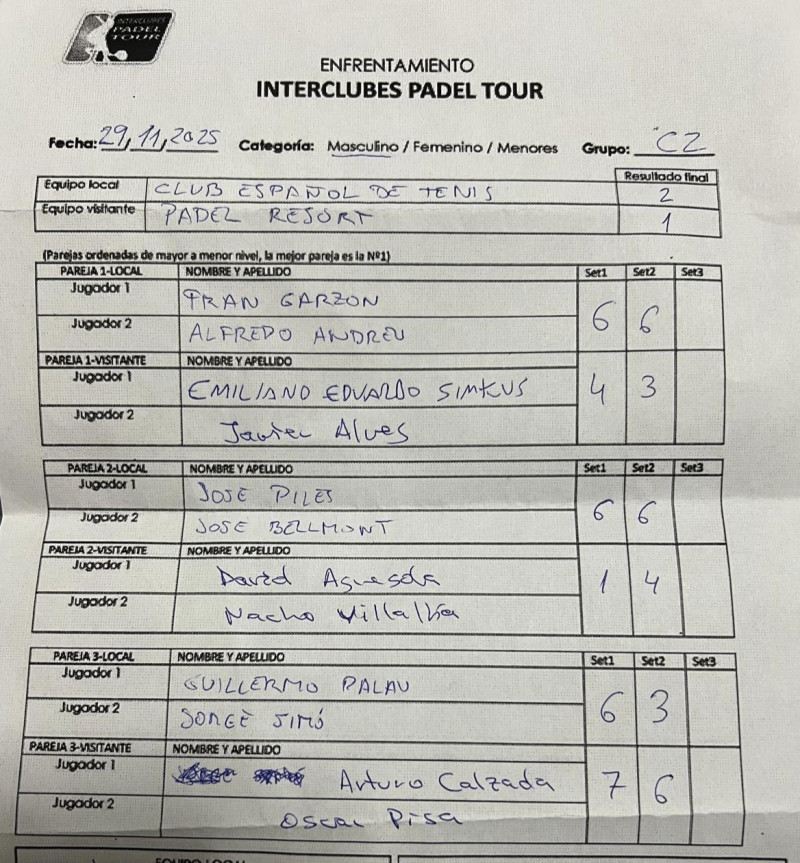 INTERCLUBES
PADEL
TOUR
ENFRENTAMIENTO
INTERCLUBES PADEL TOUR
Fecha: 29, 11, 2025 Categoría: Masculino / Femenino / Menores Grupo: C2
Resultado final
Equipo local CLUB ESPAÑOL DE TENIS 2
Equipo visitante PADEL RESORT 1
(Parejas ordenadas de mayor a menor nivel, la mejor pareja es la Nº1)
PAREJA 1-LOCAL NOMBRE Y APELLIDO Set1 Set2 Set3
Jugador 1 FRAN GARZON
6 6
Jugador 2 ALFREDO ANDREU
PAREJA 1-VISITANTE NOMBRE Y APELLIDO
Jugador 1 EMILIANO EDUARDO SIMKUS
4 3
Jugador 2 Javier Alves
PAREJA 2-LOCAL NOMBRE Y APELLIDO Set1 Set2 Set3
Jugador 1 JOSE PILES
6 6
Jugador 2 JOSE BELLMONT
PAREJA 2-VISITANTE NOMBRE Y APELLIDO
Jugador 1 David
1 4
Jugador 2 Nacho Villalba
PAREJA 3-LOCAL NOMBRE Y APELLIDO Set1 Set2 Set3
Jugador 1 GUILLERMO PALAU
6 3
Jugador 2 JORGE
PAREJA 3-VISITANTE NOMBRE Y APELLIDO
Jugador 1 Arturo Calzada
7 6
Jugador 2 Oscar Pisa